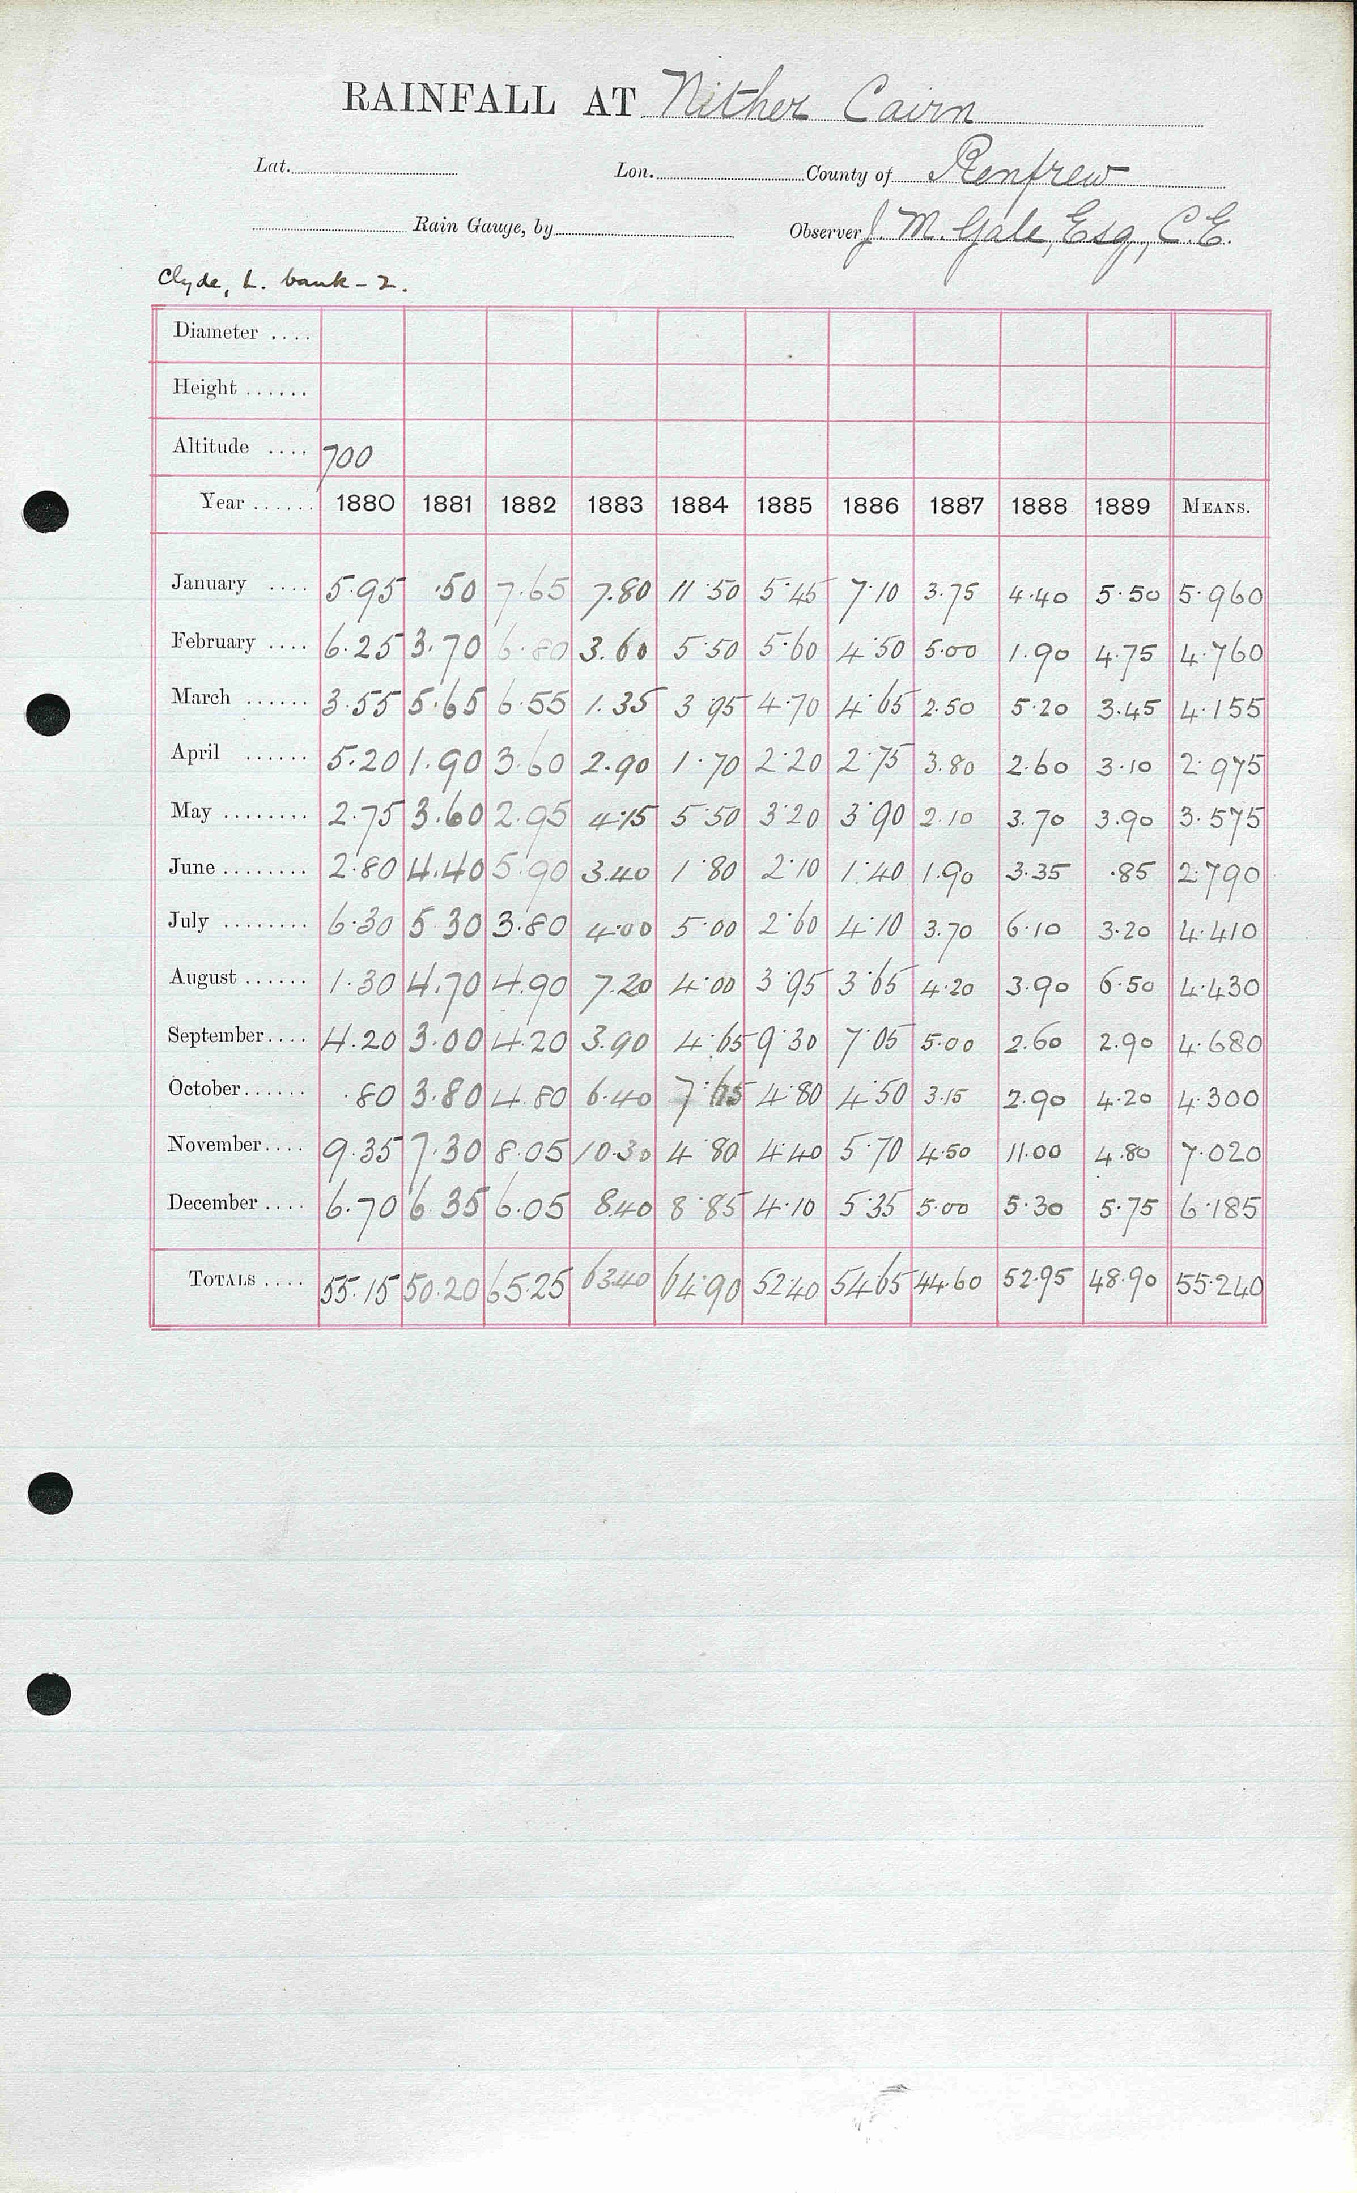 RAINFALL AT Nither Cairn
Lat. Lon. County of Renfrew
Rain Gauge, by Observer J. M. Gale, Esq, C.E.
Clyde, L. bank - 2.
Diameter ....
Height ......
Altitude .... 700
Year ...... 1880 1881 1882 1883 1884 1885 1886 1887 1888 1889 MEANS.
January .... 5.95 .50 7.65 7.80 11.50 5.45 7.10 3.75 4.40 5.50 5.960
February .... 6.25 3.70 6.80 3.60 5.50 5.60 4.50 5.00 1.90 4.75 4.760
March ...... 3.55 5.65 6.55 1.35 3.95 4.70 4.65 2.50 5.20 3.45 4.155
April ...... 5.20 1.90 3.60 2.90 1.70 2.20 2.75 3.80 2.60 3.10 2.975
May ........ 2.75 3.60 2.95 4.15 5.50 3.20 3.90 2.10 3.70 3.90 3.575
June ........ 2.80 4.40 5.90 3.40 1.80 2.10 1.40 1.90 3.35 .85 2.790
July ........ 6.30 5.30 3.80 4.00 5.00 2.60 4.10 3.70 6.10 3.20 4.410
August ...... 1.30 4.70 4.90 7.20 4.00 3.95 3.65 4.20 3.90 6.50 4.430
September.... 4.20 3.00 4.20 3.90 4.65 9.30 7.05 5.00 2.60 2.90 4.680
October...... .80 3.80 4.80 6.40 7.65 4.80 4.50 3.15 2.90 4.20 4.300
November.... 9.35 7.30 8.05 10.30 4.80 4.40 5.70 4.50 11.00 4.80 7.020
December .... 6.70 6.35 6.05 8.40 8.85 4.10 5.35 5.00 5.30 5.75 6.185
TOTALS .... 55.15 50.20 65.25 63.40 64.90 52.40 54.65 44.60 52.95 48.90 55.240